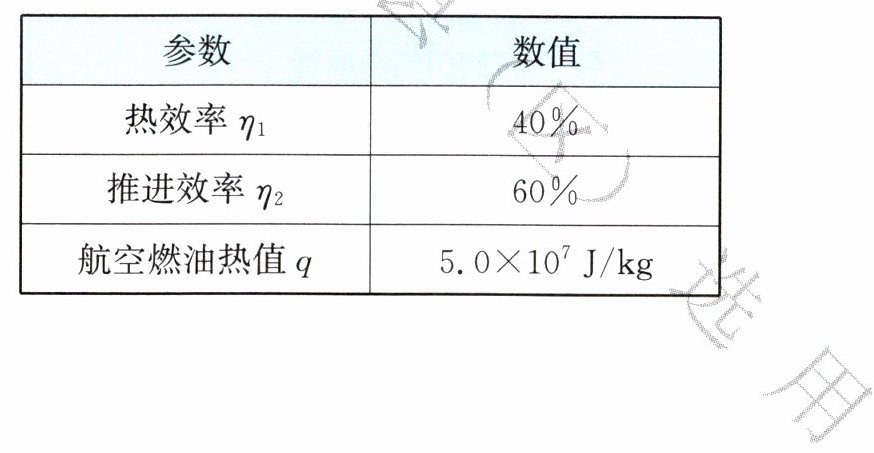 参数 数值
热效率 η₁ 40%
推进效率 η₂ 60%
航空燃油热值 q 5.0×10⁷ J/kg
(区)
选用